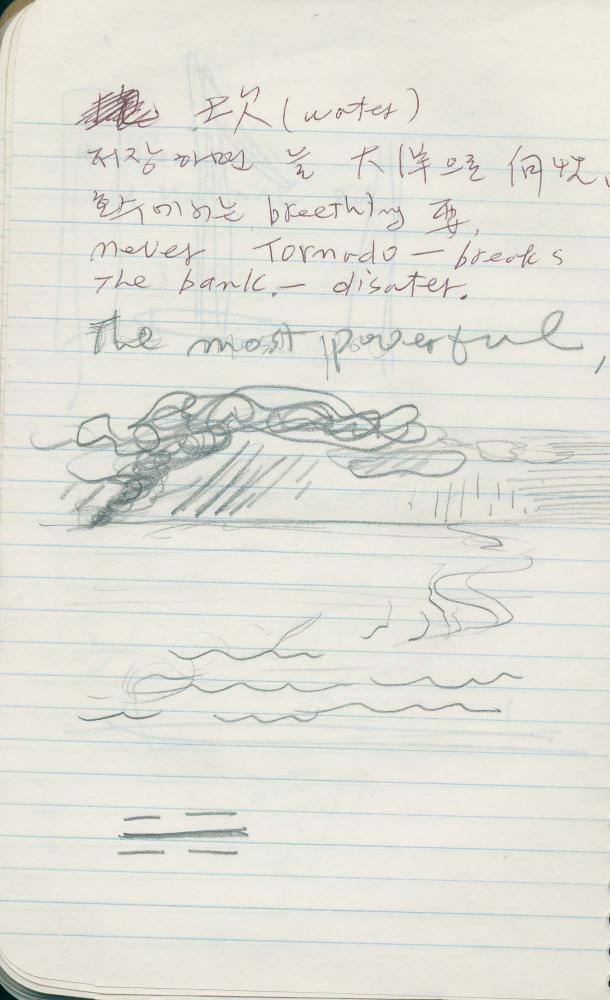 坎 (water)
저장하면 늘 大洋으로 向性,
할수에게는 breething 要,
never Tornado — breaks
The bank. — disater.
The most powerful,